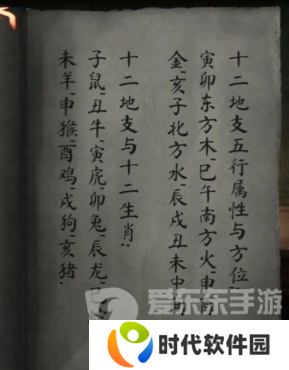 十二地支五行属性与方位:
寅卯东方木,巳午南方火,申酉
金,亥子北方水,辰戌丑未中
十二地支与十二生肖:
子鼠,丑牛,寅虎,卯兔,辰龙,巳
未羊,申猴,酉鸡,戌狗,亥猪
爱东东手游
时代软件园